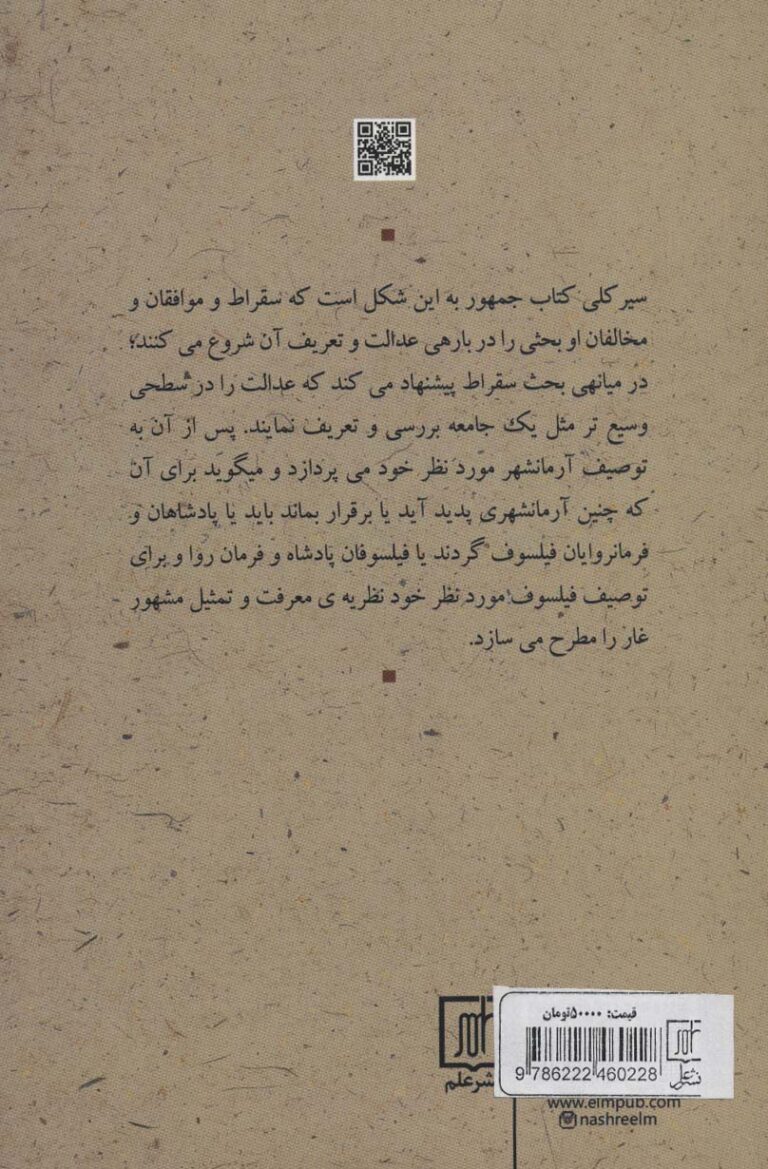 سیر کلی کتاب جمهور به این شکل است که سقراط و موافقان و
مخالفان او بحثی را در بارهی عدالت و تعریف آن شروع می کنند؛
در میانهی بحث سقراط پیشنهاد می کند که عدالت را در سطحی
وسیع تر مثل یک جامعه بررسی و تعریف نمایند. پس از آن به
توصیف آرمانشهر مورد نظر خود می پردازد و میگوید برای آن
که چنین آرمانشهری پدید آید یا برقرار بماند باید یا پادشاهان و
فرمانروایان فیلسوف گردند یا فیلسوفان پادشاه و فرمان روا و برای
توصیف فیلسوف مورد نظر خود نظریه ی معرفت و تمثیل مشهور
غار را مطرح می سازد.
قیمت: ۵۰۰۰۰تومان
9 786222 460228
نشر علم
نشر علم
www.elmpub.com
nashreelm